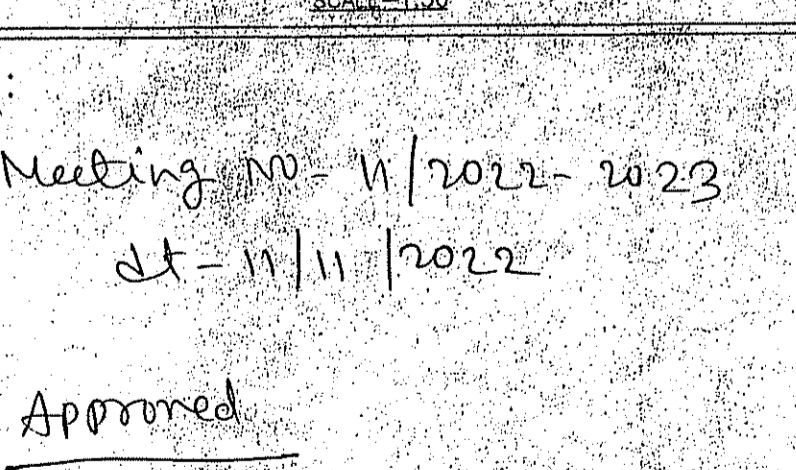 SCALE=1:50
:
Meeting NO- 11/2022-2023
dt-11/11/2022
Approved